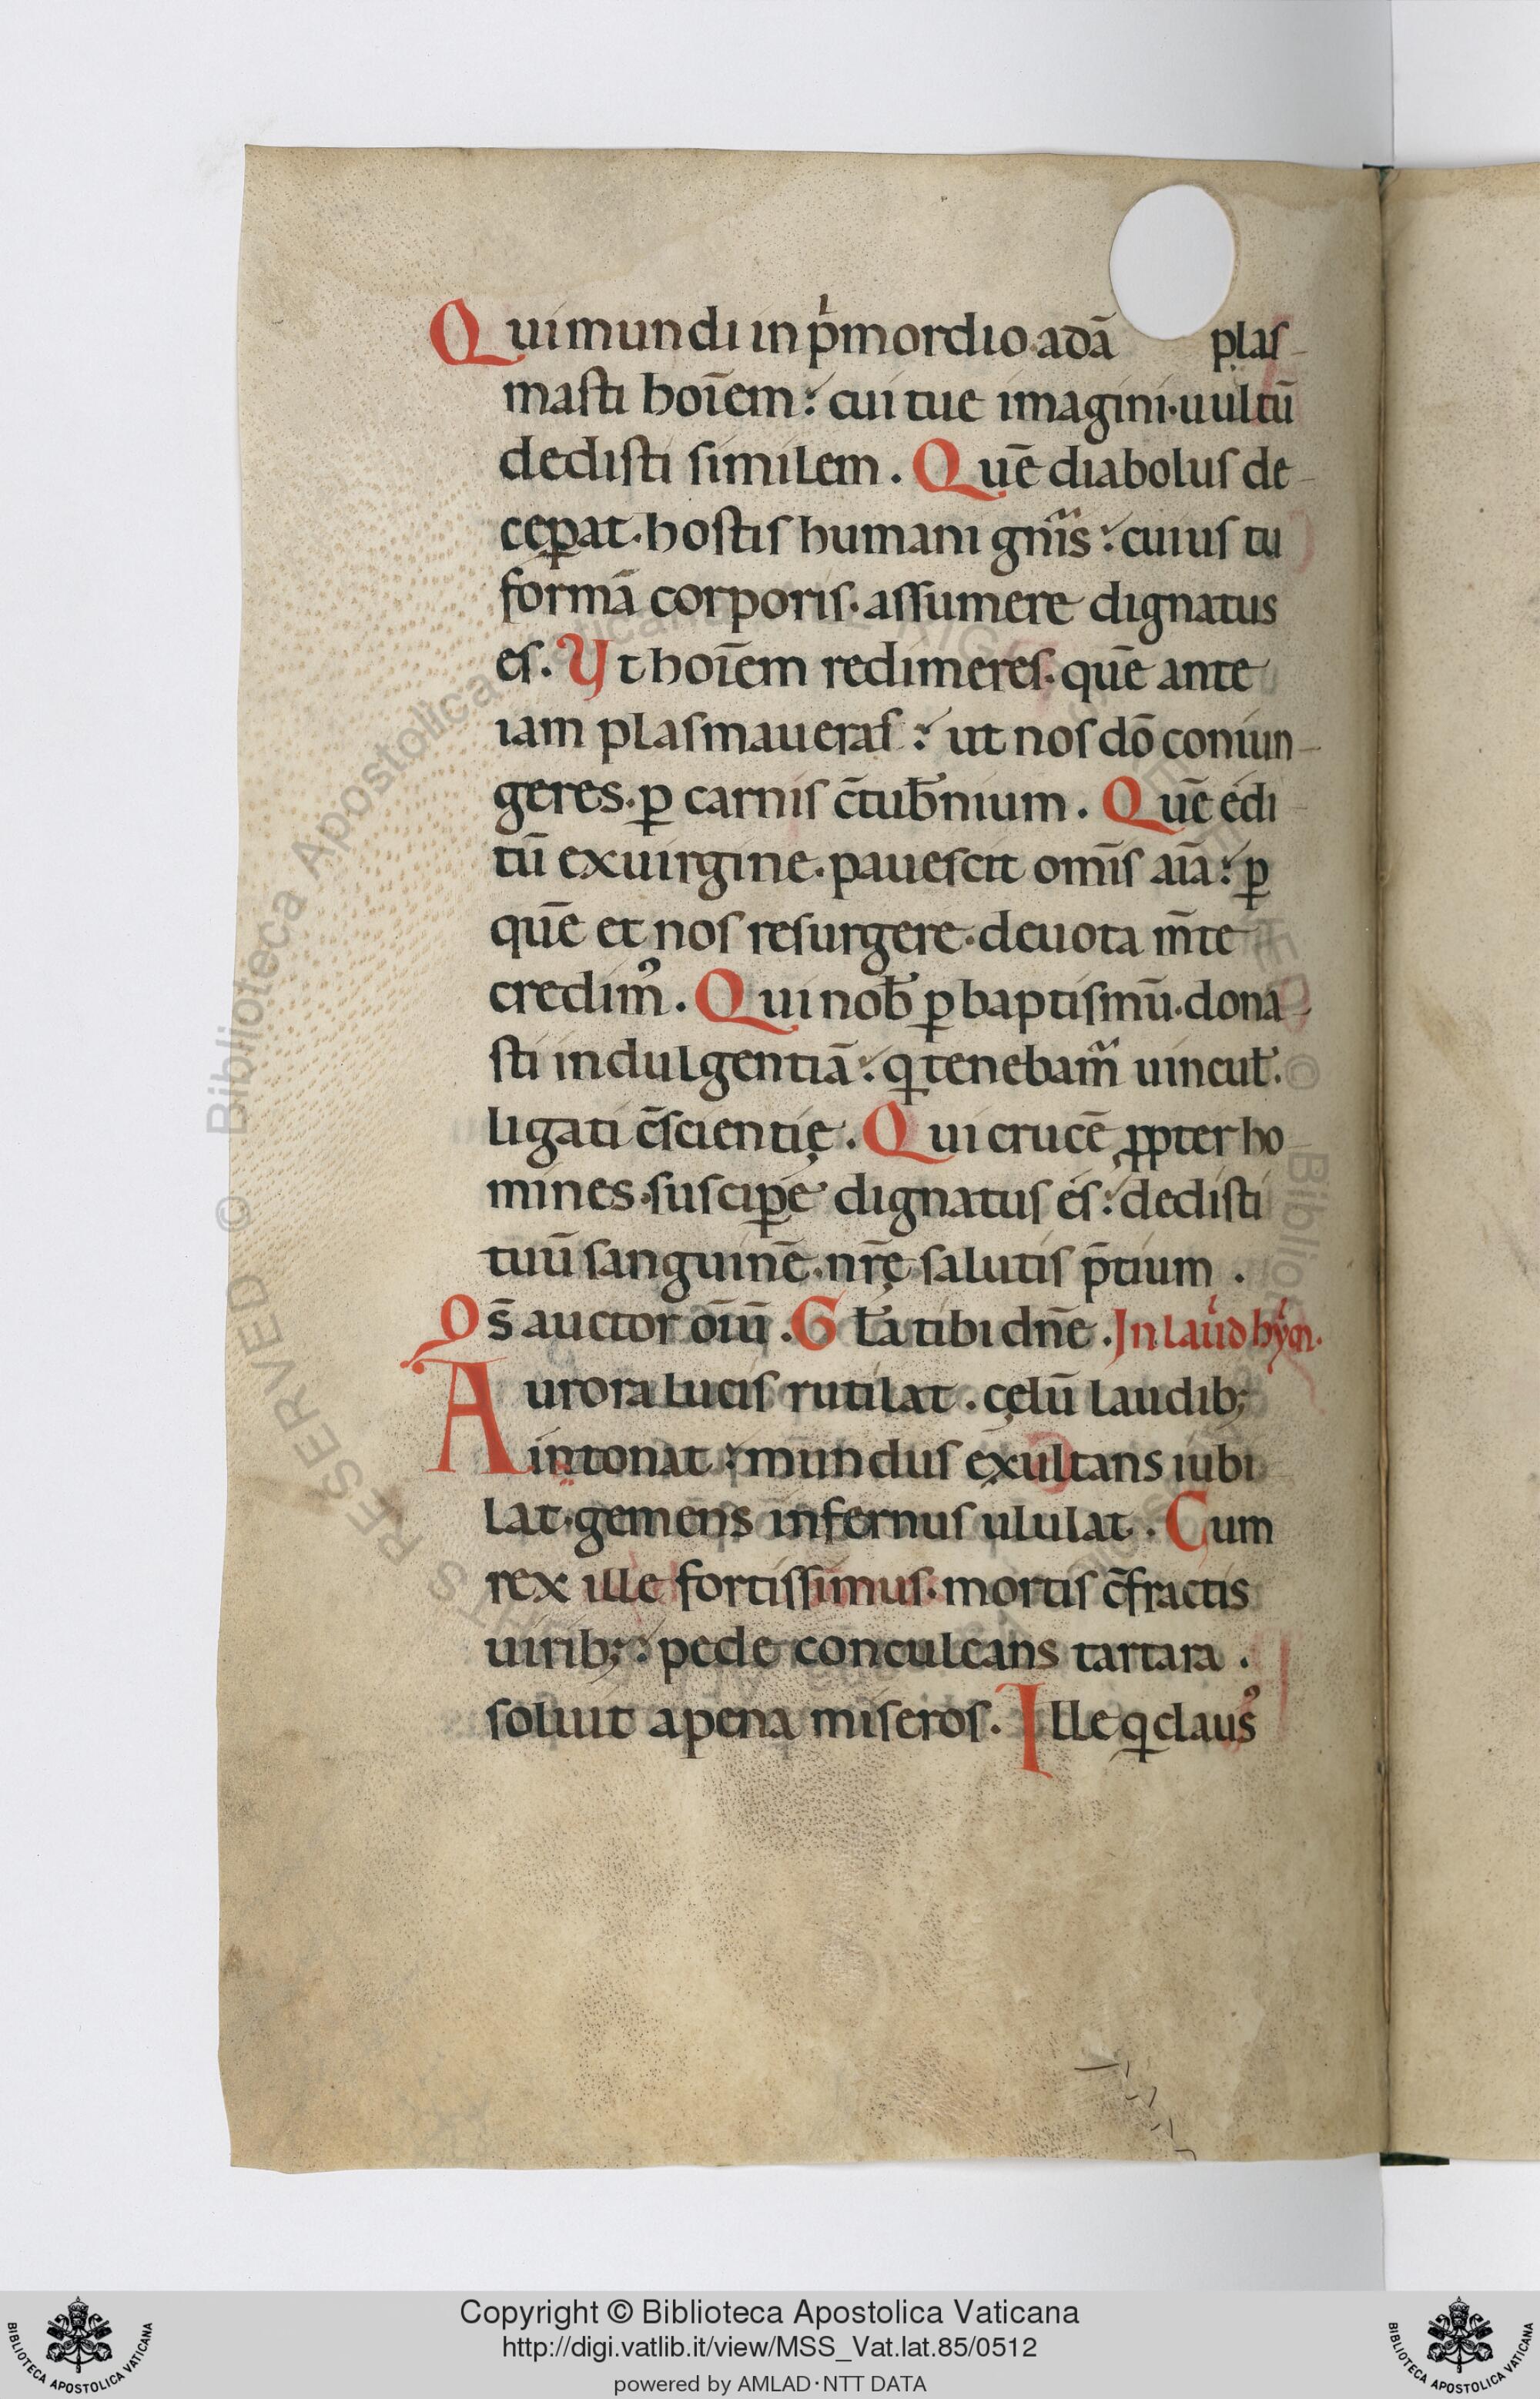 Qui mundi in p̾mordio·adā plas-
masti hoīem: cui tue imagini·uultū
dedisti similem. Quē diabolus de-
cep̱at·hostis humani gnīs: cuius tu
formā corporis·assumere dignatus
es. Vt hoīem redimeres·quē ante
iam plasmaueras: ut nos dō coniun-
geres·ꝑ carnis c̄tub̄nium. Quē edi-
tū ex uirgine·pauescit omīs aīa: ꝑ
quē et nos resurgere·deuota m̄te
credimꝰ. Qui nob̄ ꝑ baptismū·dona-
sti indulgentiā: ꝗ tenebam̄ uincul̄.
ligati c̄scientię. Qui crucē ꝓpter ho-
mines·suscip̱e dignatus es: dedisti
tuū sanguinē·nr̄ę salutis p̄tium.
Qs̄ auctor oīū. Gl̄a tibi dnē. In laud hym̄.
Aurora lucis rutilat. cęlū laudib;
intonat: mundus exultans iubi
lat·gemens infernus ululat. Cum
rex ille fortissimus·mortis c̄fractis
uirib;: pede conculcans tartara.
soluit a pena miseros. Ille ꝗ clausꝰ
© Biblioteca Apostolica Vaticana
Copyright © Biblioteca Apostolica Vaticana
http://digi.vatlib.it/view/MSS_Vat.lat.85/0512
powered by AMLAD·NTT DATA
BIBLIOTECA APOSTOLICA VATICANA
BIBLIOTECA APOSTOLICA VATICANA